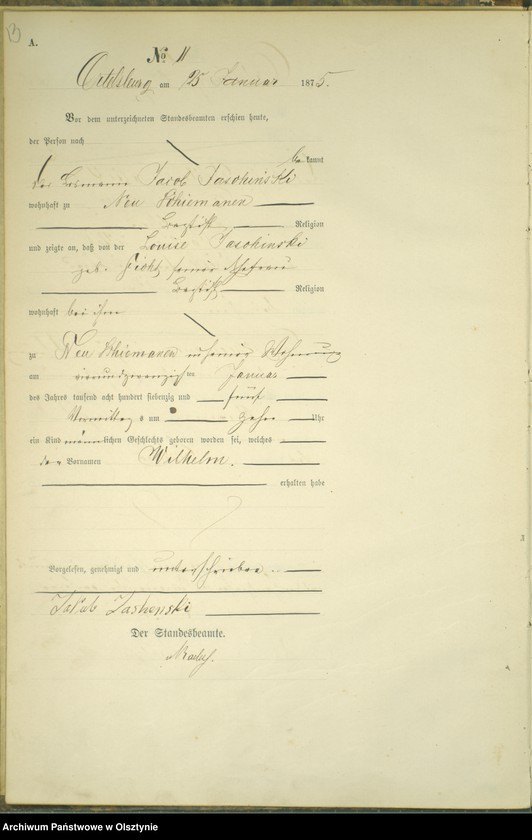 A.
No 11
Ortelsburg am 25 Januar 1875.
Vor dem unterzeichneten Standesbeamten erschien heute,
der Person nach
bekannt
der Losmann Jacob Jaschinski
wohnhaft zu Neu Schiemanen
Baptist Religion
und zeigte an, daß von der Louise Jaschinski
geb. Ficht seiner Ehefrau
Baptist Religion
wohnhaft bei ihm
zu Neu Schiemanen in seiner Wohnung
am vierundzwanzigsten Januar
des Jahres tausend acht hundert siebenzig und fünf
Vormittags um zehn Uhr
ein Kind männlichen Geschlechts geboren worden sei, welches
den Vornamen Wilhelm.
erhalten habe
Vorgelesen, genehmigt und unterschrieben.
Jakub Jashenski
Der Standesbeamte.
Archiwum Państwowe w Olsztynie